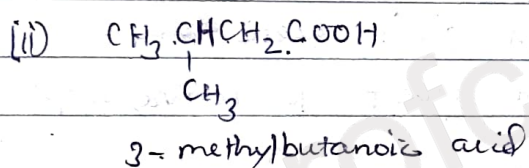 (ii) CH3.CHCH2.COOH
CH3
3-methylbutanoic acid